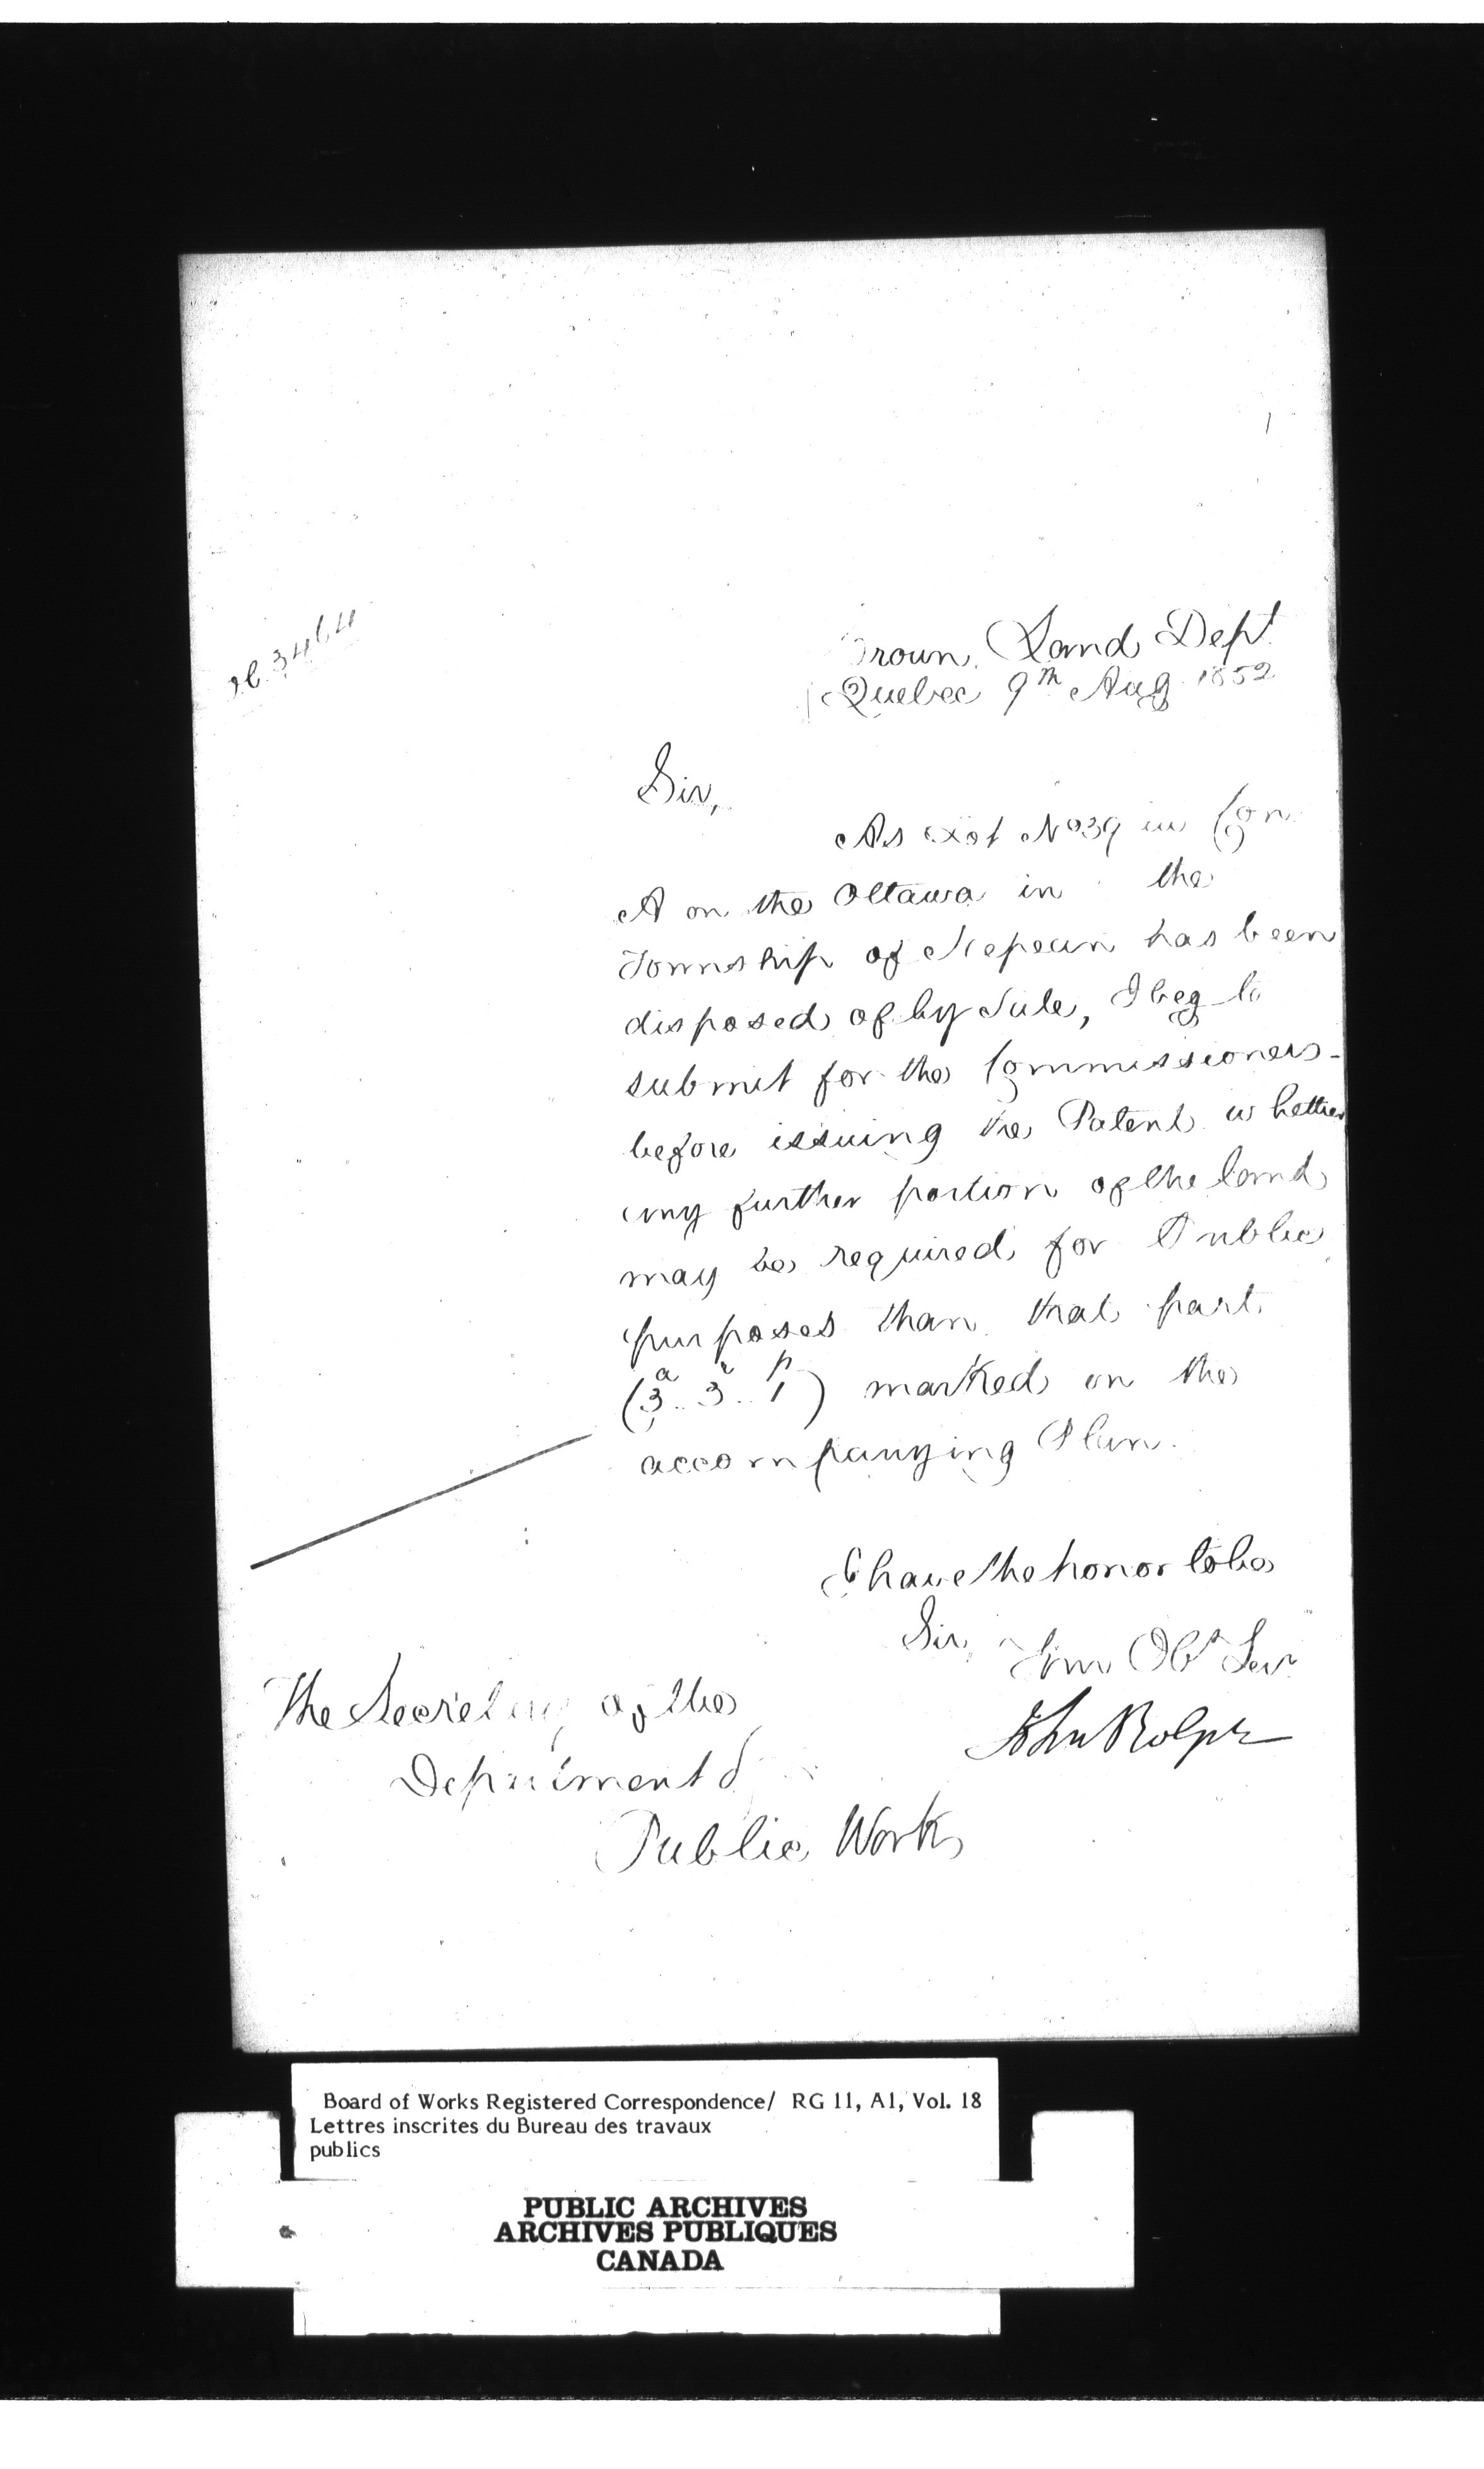 Crown Land Dept
Quebec 9th Aug 1852
Sir,
As Lot No 39 in Con
A on the Ottawa in the
Township of Nepean has been
disposed of by Sale, I beg to
submit for the Commissioners-
before issuing the Patent whether
any further portion of the land
may be required for Public
purposes than that part
(3a..3r..1p) marked on the
accompanying Plan.
I have the honor to be
Sir,
Your Obt Servt
John Rolph
The Secretary of the
Department of
Public Works
Board of Works Registered Correspondence/ RG 11, A1, Vol. 18
Lettres inscrites du Bureau des travaux
publics
PUBLIC ARCHIVES
ARCHIVES PUBLIQUES
CANADA